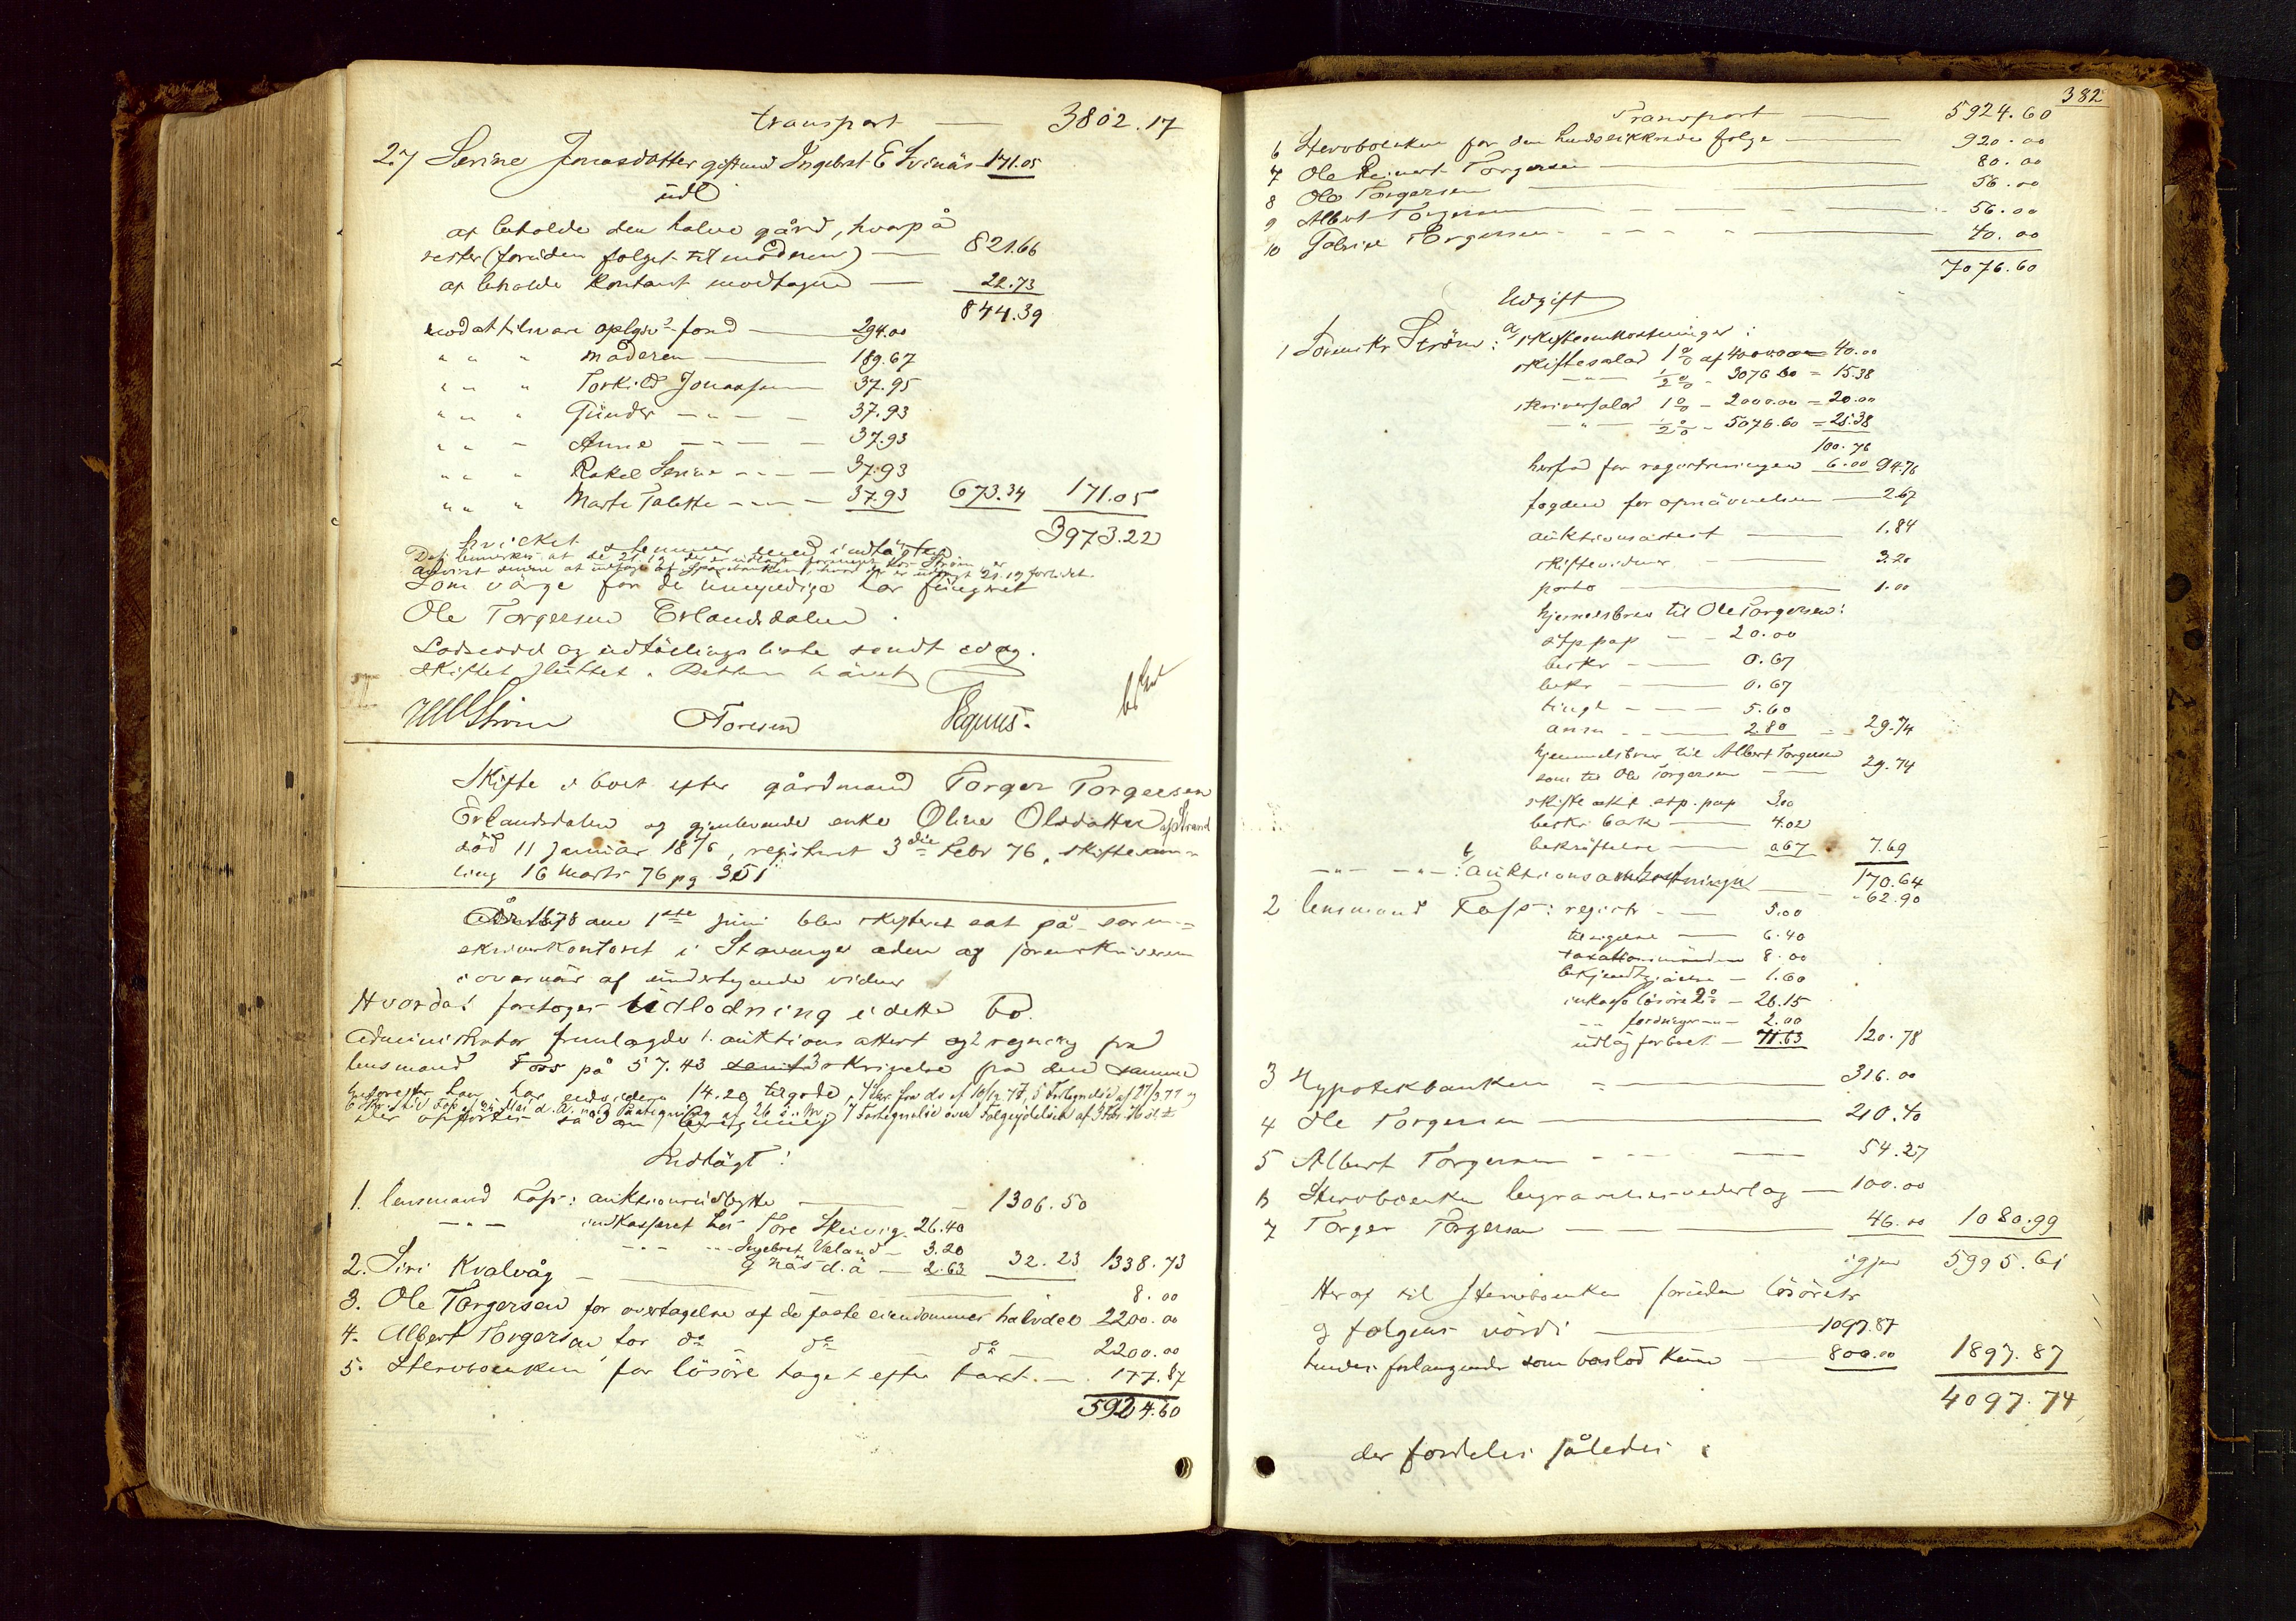 transport — 3802.17
27 Serine Jonasdatter gift med Ingebret E Svinäs 171.05
udl
at beholde den halve gård, hvorpå
rester (foruden folget til moderen) — 821.66
at beholde kontant modtagne — 22.73
844.39
mod at tilsvare oplysn.fond — 294.00
" " " moderen — 189.67
" " " Torkild Jonassen 37.95
" " " Gunder — " — 37.93
" " " Anne — " — 37.93
" " " Rakel Serine — " — 37.93
" " " Marte Talette — " — 37.93 673.34 171.05
3973.22
hvilket stemmer med indtägten
Som värge for de umyndige har fungeret
Ole Torgersen Erlandsdalen.
Lodseddel og udtællingsliste sendt idag.
Skiftet sluttet. Retten hävet
Strøm Toresen Rasmus.
Skifte i boet efter gårdmand Torger Torgersen
Erlandsdalen og gjenlevende enke Oline Olsdatter af Strand
död 11 Januar 1876, registeret 3die Febr 76, skiftesam=
ling 16 Marts 76 pg 351
År 1878 den 1ste Juni blev skifteret sat på soren=
skriverkontoret i Stavanger aden af sorenskriveren
i overvär af undertegnede vidner
Hvorda! foretoges Udlodning i dette bo.
Administrator fremlagde 1. auktions attest og 2 regning fra
lensmand Foss på 57.43 samt 3 skrivelse fra den samme
hvorefter han har endvidere 14.20 tilgode, 4 Skr fra do af 10/12 77, 5 Fortegnelse af 27/3 77 og
der opförtes sådan beregning
Indtägt:
1. lensmand Foss: auktionsudbytte — 1306.50
— " — indkasseret hos Tore Skeivig 26.40
— " — " Ingebret Veland — 3.20
G Näs d.ä — 2.63 32.23 1338.73
2. Siri Kvalvåg — 8.00
3. Ole Torgersen for overtagelse af de faste eiendommes halvdel 2200.00
4. Albert Torgersen for do — do — do — 2200.00
5. Stervboenken for lösöre taget efter taxt. — 177.87
5924.60
382
Transport — 5924.60
6 Stervboenken for den hende sikkrede folge — 920.00
7 Ole Reinert Torgersen — 80.00
8 Ole Torgersen — 56.00
9 Albert Torgersen — 56.00
10 Tobine Torgersen — 40.00
7076.60
Udgift
1 Sorenskr Ström: a/ skifteomkostninger:
skiftesalär 1% af 4000.00 = 40.00
— " — ½% - 3076.60 = 15.38
skriversalär 1% - 2000.00 = 20.00
— " — ½% - 5076.60 = 25.38
100.76
herfra for registreringen 6.00 94.76
fogden for opnävnelsen — 2.67
auktionsattest — 1.84
skiftevidner — 3.20
porto — 1.00
hjemmelsbrev til Ole Torgersen:
stp pap — 20.00
beskr — 0.67
bekr — 0.67
tingl — 5.60
anm — 2.80 — 29.74
hjemmelsbrev til Albert Torgersen
som til Ole Torgersen — 29.74
skifteakt stp. pap 3.00
beskr. bark — 4.02
bekräftelse — 0.67 7.69
170.64
— " — " — b/ auktionsomkostninger — 62.90
2 lensmand Foss: registr — 5.00
tilsigelse — 6.40
taxationsmänden 8.00
bekjendtgjörelse — 1.60
inkasso lösöre 2% — 26.15
— " fordringer — " — 2.00
udläg for boet — 71.63 120.78
3 Hypotekbanken — 316.00
4 Ole Torgersen — 210.40
5 Albert Torgersen — 54.27
6 Stervboenken begravelsesvederlag — 100.00
7 Torger Torgersen — 46.00 1080.99
igjen 5995.61
Heraf til Stervboenken foruden lösörets
og folgens värdi — 1097.87
hendes forlangende som boslod kun — 800.00 1897.87
4097.74
der fordeles således: